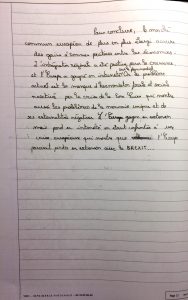 Pour conclure, le marché
commun européen de plus en plus élargi assure
des gains d'échanges positives entre les économies.
L'intégration régional a été positive pour la croissance
et l'Europe a gagné en intensité. Le problème
actuel est le manque d'harmonisation fiscale et social
par la crise de la Zone Euro qui montre
aussi les problèmes de la monnaie unique et de
ses externalités négatives. L'Europe gagne en extension
mais perd en intensité en étant confrontée à une
crise européenne qui montre que l'Europe
pourrait perdre en extension avec le BREXIT...